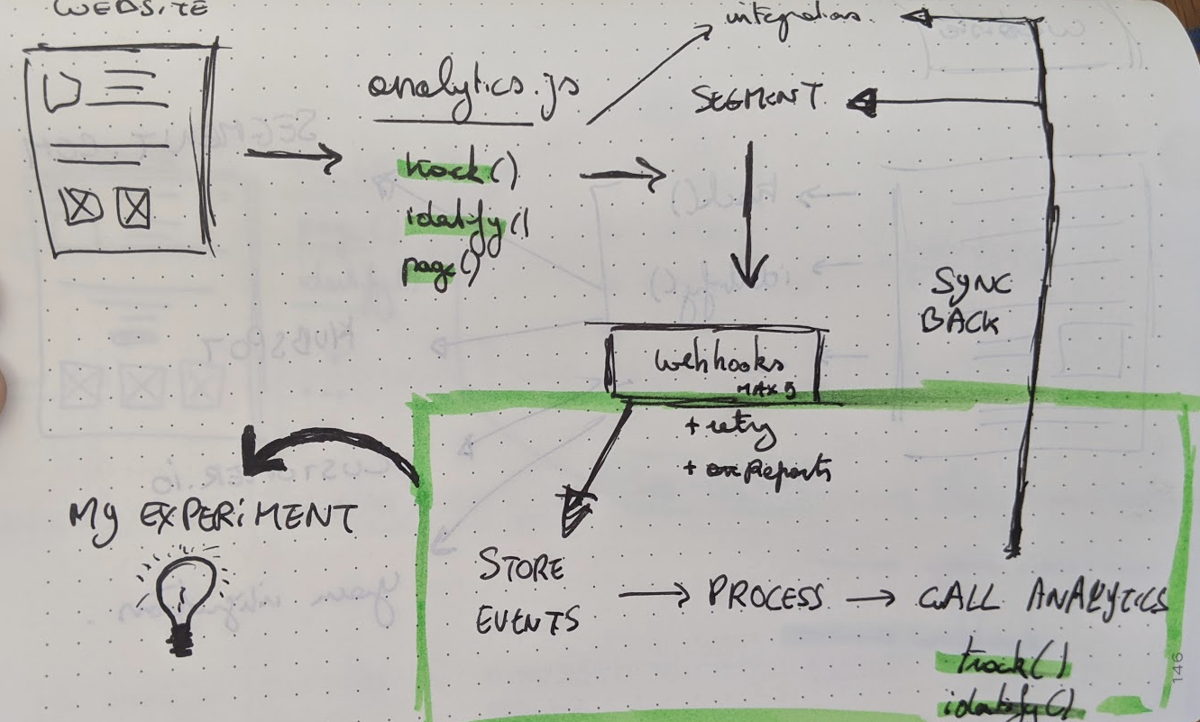 WEBSITE
integrations
analytics.js
SEGMENT
track()
identify()
page()
SYNC
BACK
webhooks
MAX 5
+ retry
+ Reports
MY EXPERIMENT
STORE
EVENTS
PROCESS
CALL ANALYTICS
track()
identify()
146